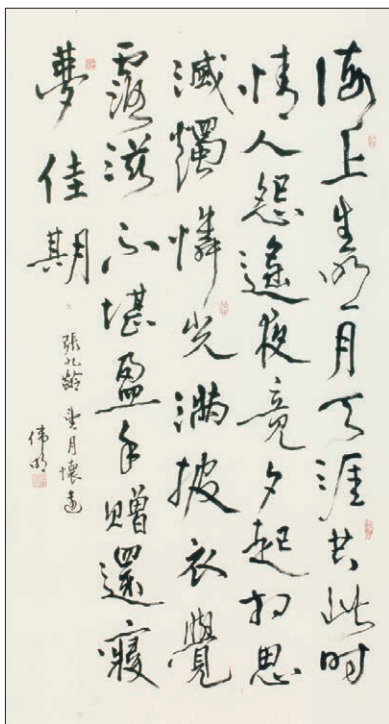 海上生明月天涯共此时
情人怨遥夜竟夕起相思
滅燭憐光滿披衣覺
露滋不堪盈手贈還寢
夢佳期
張九齡 望月懷遠
伟明